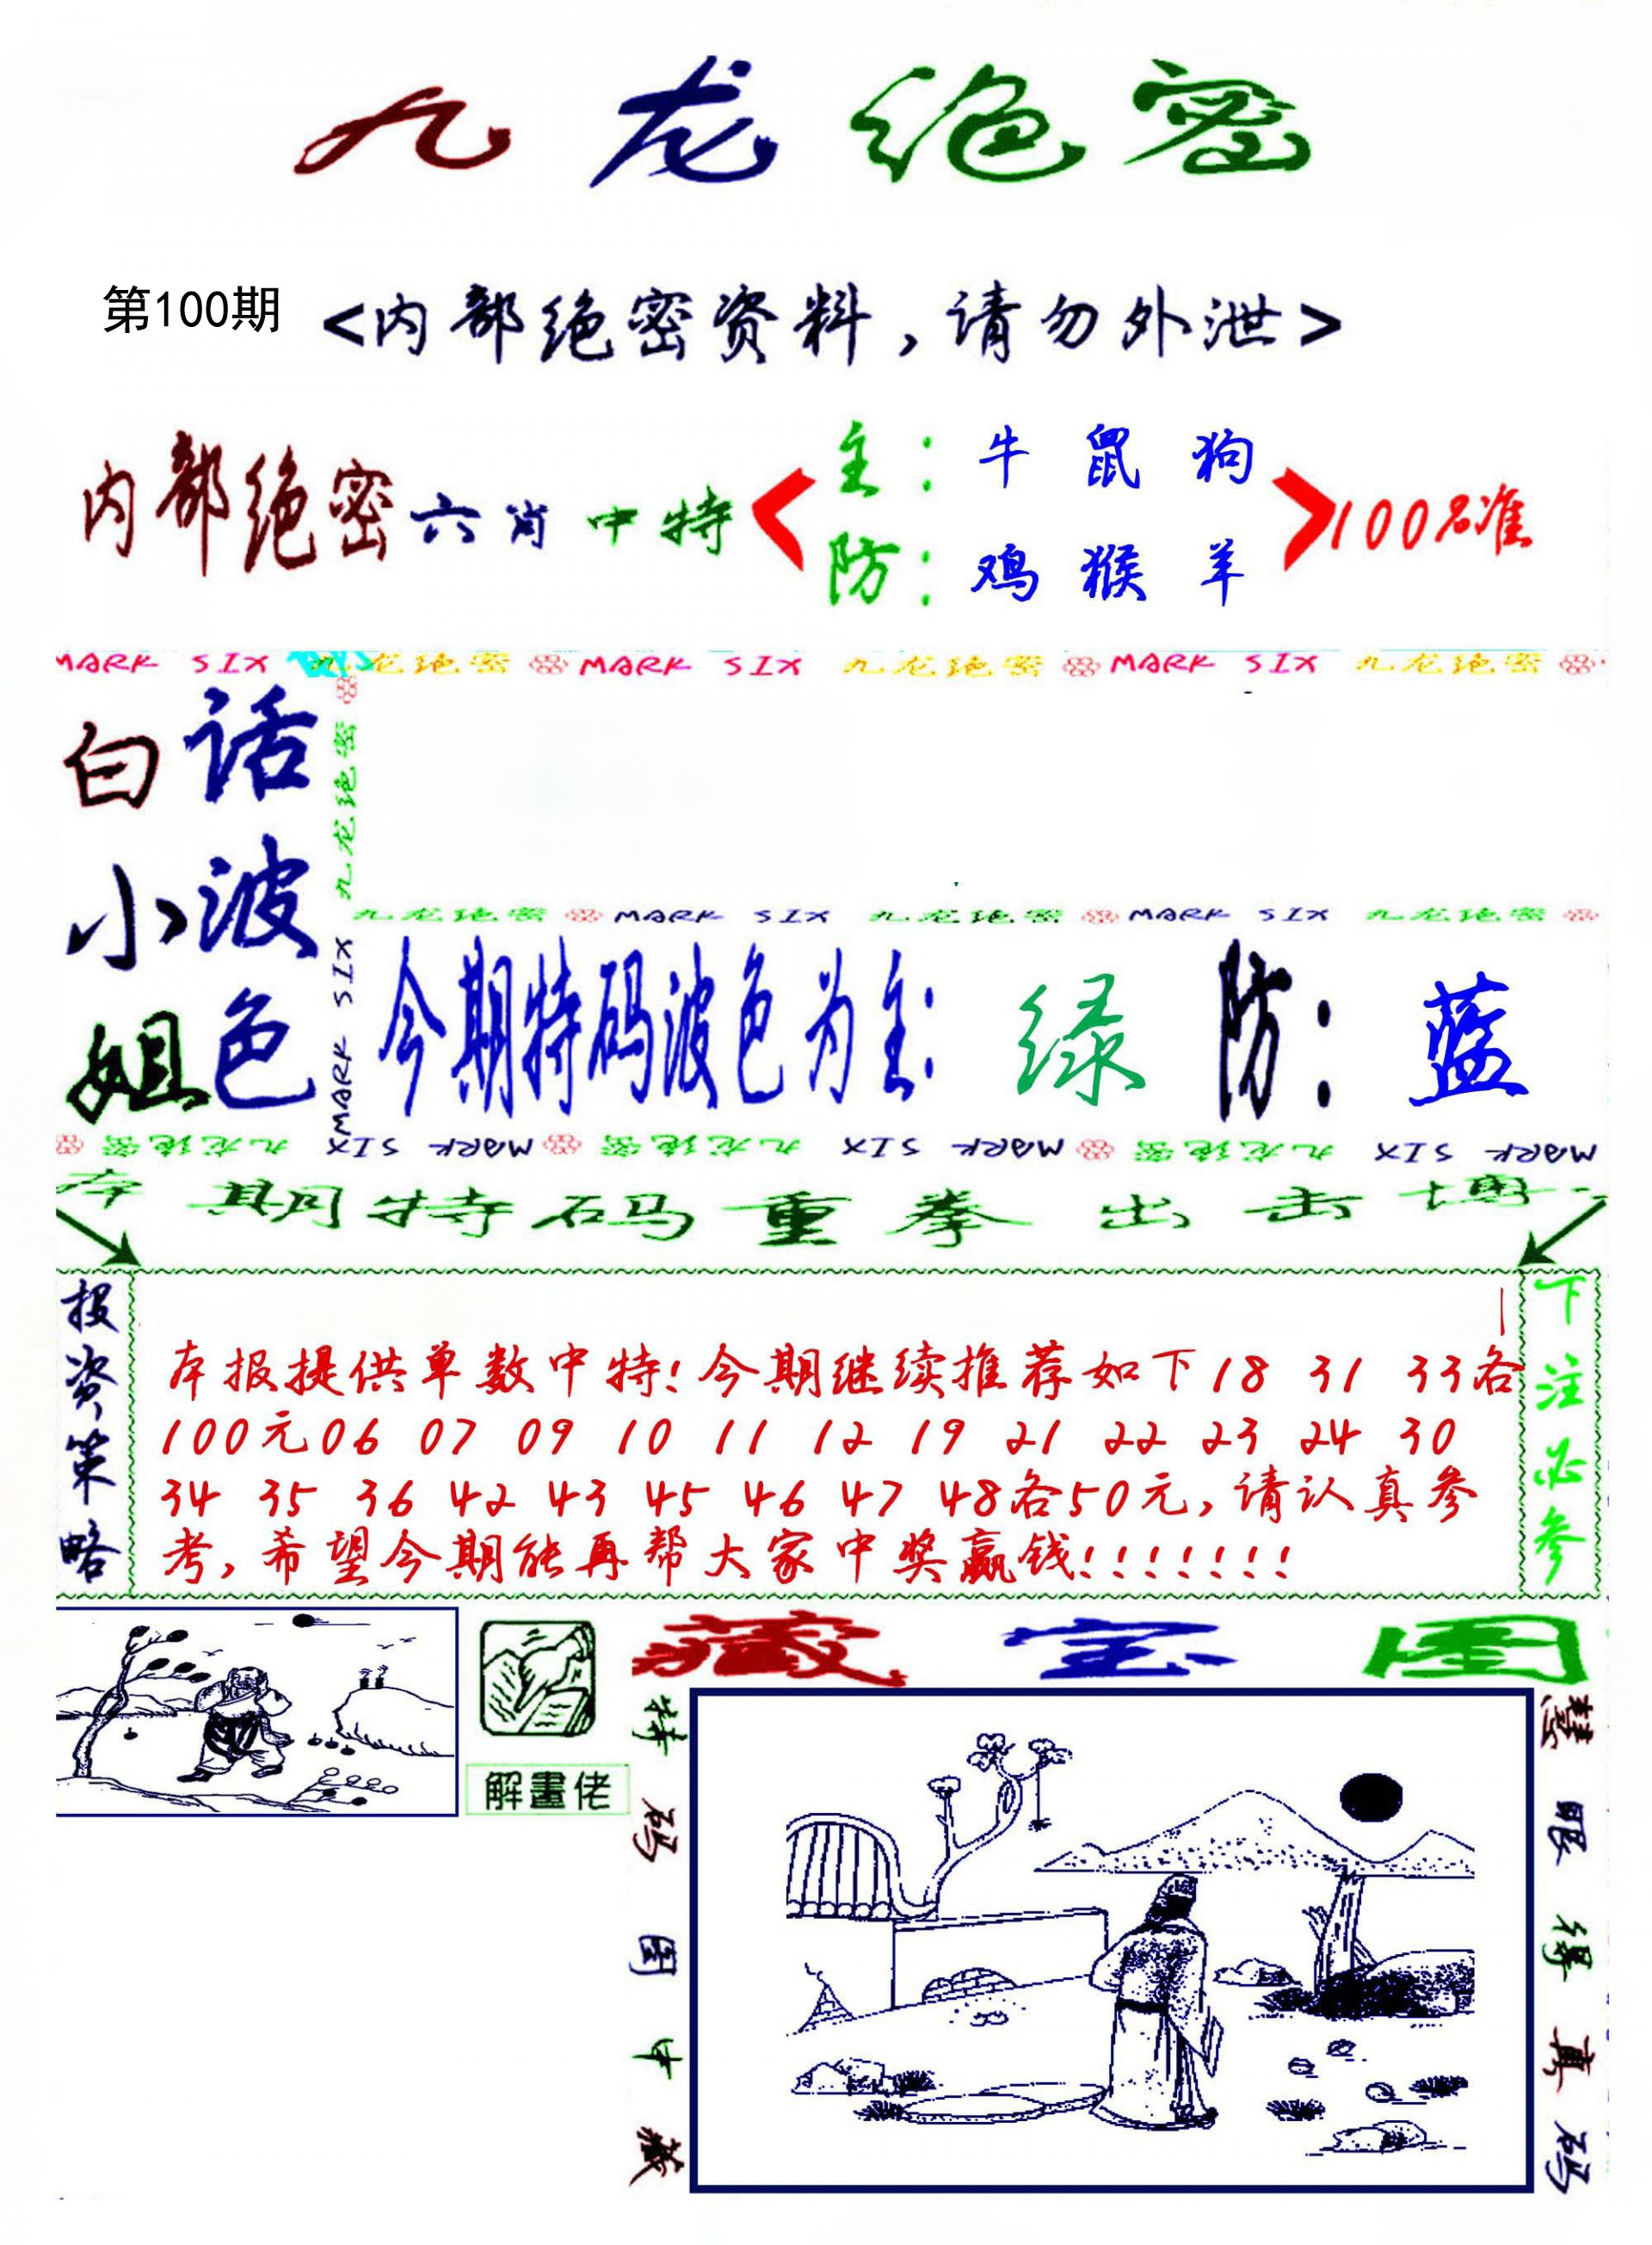 九龙绝密
第100期 <内部绝密资料，请勿外泄>
内部绝密六肖中特
主：牛 鼠 狗
防：鸡 猴 羊
100%准
MARK SIX 九龙绝密 MARK SIX 九龙绝密 MARK SIX 九龙绝密
白小姐
话波色
九龙绝密 MARK SIX
九龙绝密 MARK SIX 九龙绝密 MARK SIX 九龙绝密
今期特码波色为主：绿 防：蓝
MARK SIX 九龙绝密 MARK SIX 九龙绝密 MARK SIX 九龙绝密
本期特码重拳出击博
投资策略
本报提供单数中特!今期继续推荐如下18 31 33各
100元06 07 09 10 11 12 19 21 22 23 24 30
34 35 36 42 43 45 46 47 48各50元,请认真参
考,希望今期能再帮大家中奖赢钱!!!!!!!
下注必参
解畫佬
藏宝图
特码图中藏
慧眼得真码